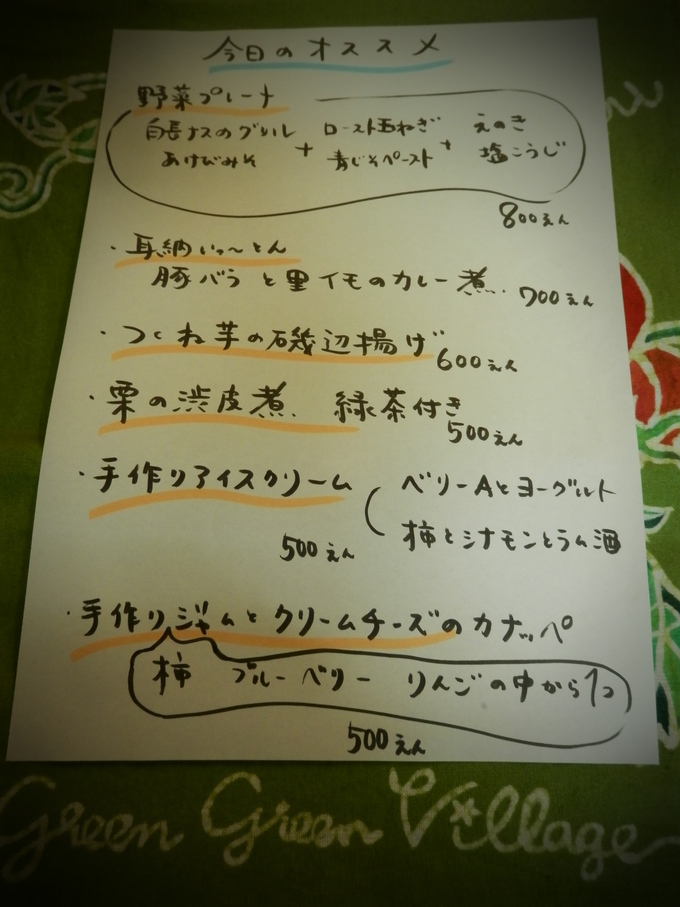 今日のオススメ
野菜プレート
白長ナスのグリル + ロースト玉ねぎ + えのき
あけびみそ 青じそペースト 塩こうじ
800えん
・耳納いっ〜とん
豚バラと里イモのカレー煮 700えん
・つくね芋の磯辺揚げ 600えん
・栗の渋皮煮 緑茶付き
500えん
・手作りアイスクリーム ( ベリーAとヨーグルト
柿とシナモンとラム酒
500えん
・手作りジャムとクリームチーズのカナッペ
柿 ブルーベリー りんごの中から1つ
500えん
Green Green Village